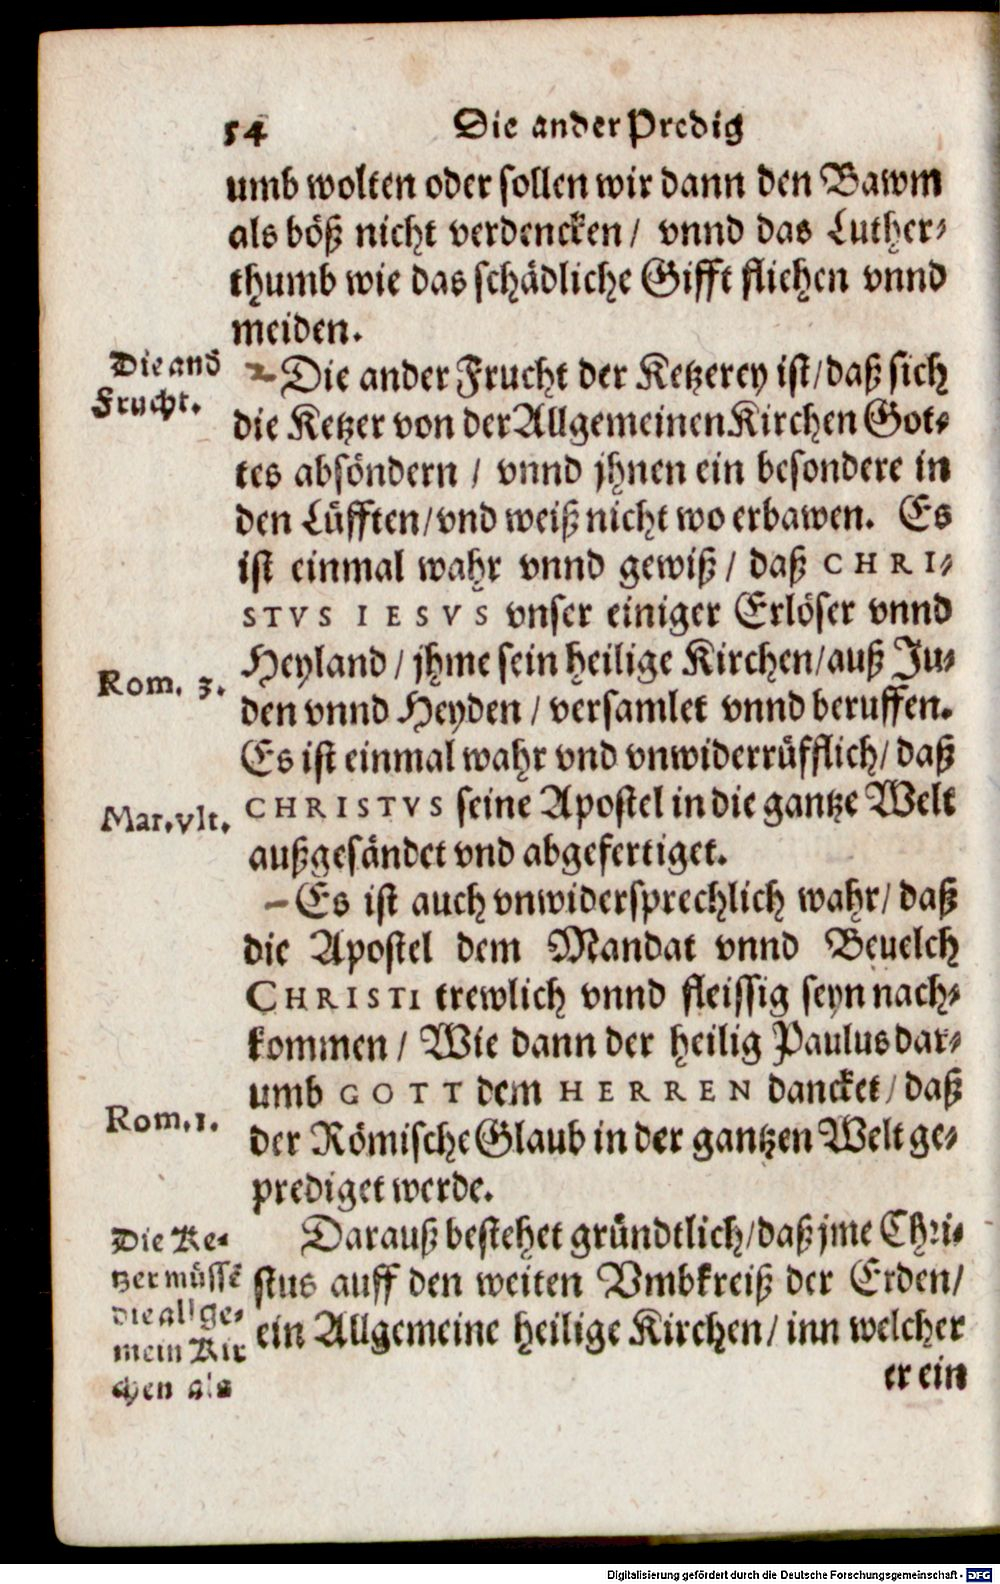 54 Die ander Predig
umb wolten oder sollen wir dann den Bawm
als böß nicht verdencken / vnnd das Luther-
thumb wie das schädliche Gifft fliehen vnnd
meiden.
Die and
Frucht.
2 Die ander Frucht der Ketzerey ist / daß sich
die Ketzer von der Allgemeinen Kirchen Got-
tes absöndern / vnnd jhnen ein besondere in
den Lüfften / vnd weiß nicht wo erbawen. Es
ist einmal wahr vnnd gewiß / daß CHRI-
STVS IESVS vnser einiger Erlöser vnnd
Heyland / jhme sein heilige Kirchen / auß Ju-
Rom. 3.
den vnnd Heyden / versamlet vnnd beruffen.
Es ist einmal wahr vnd vnwiderrüfflich / daß
CHRISTVS seine Apostel in die gantze Welt
Mar. vlt.
außgesändet vnd abgefertiget.
Es ist auch vnwidersprechlich wahr / daß
die Apostel dem Mandat vnnd Beuelch
CHRISTI trewlich vnnd fleissig seyn nach-
kommen / Wie dann der heilig Paulus dar-
umb GOTT dem HERREN dancket / daß
Rom. 1.
der Römische Glaub in der gantzen Welt ge-
prediget werde.
Darauß bestehet gründtlich / daß jme Chri-
stus auff den weiten Vmbkreiß der Erden /
ein Allgemeine heilige Kirchen / inn welcher
Die Ke-
tzer müssẽ
die allge-
mein Kir
chen als
er ein
Digitalisierung gefördert durch die Deutsche Forschungsgemeinschaft - DFG